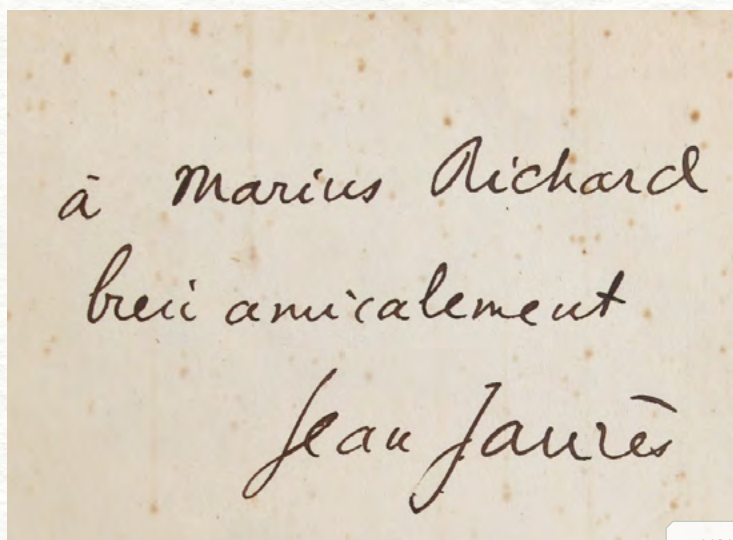 à Marius Richard
bien amicalement
Jean Jaurès